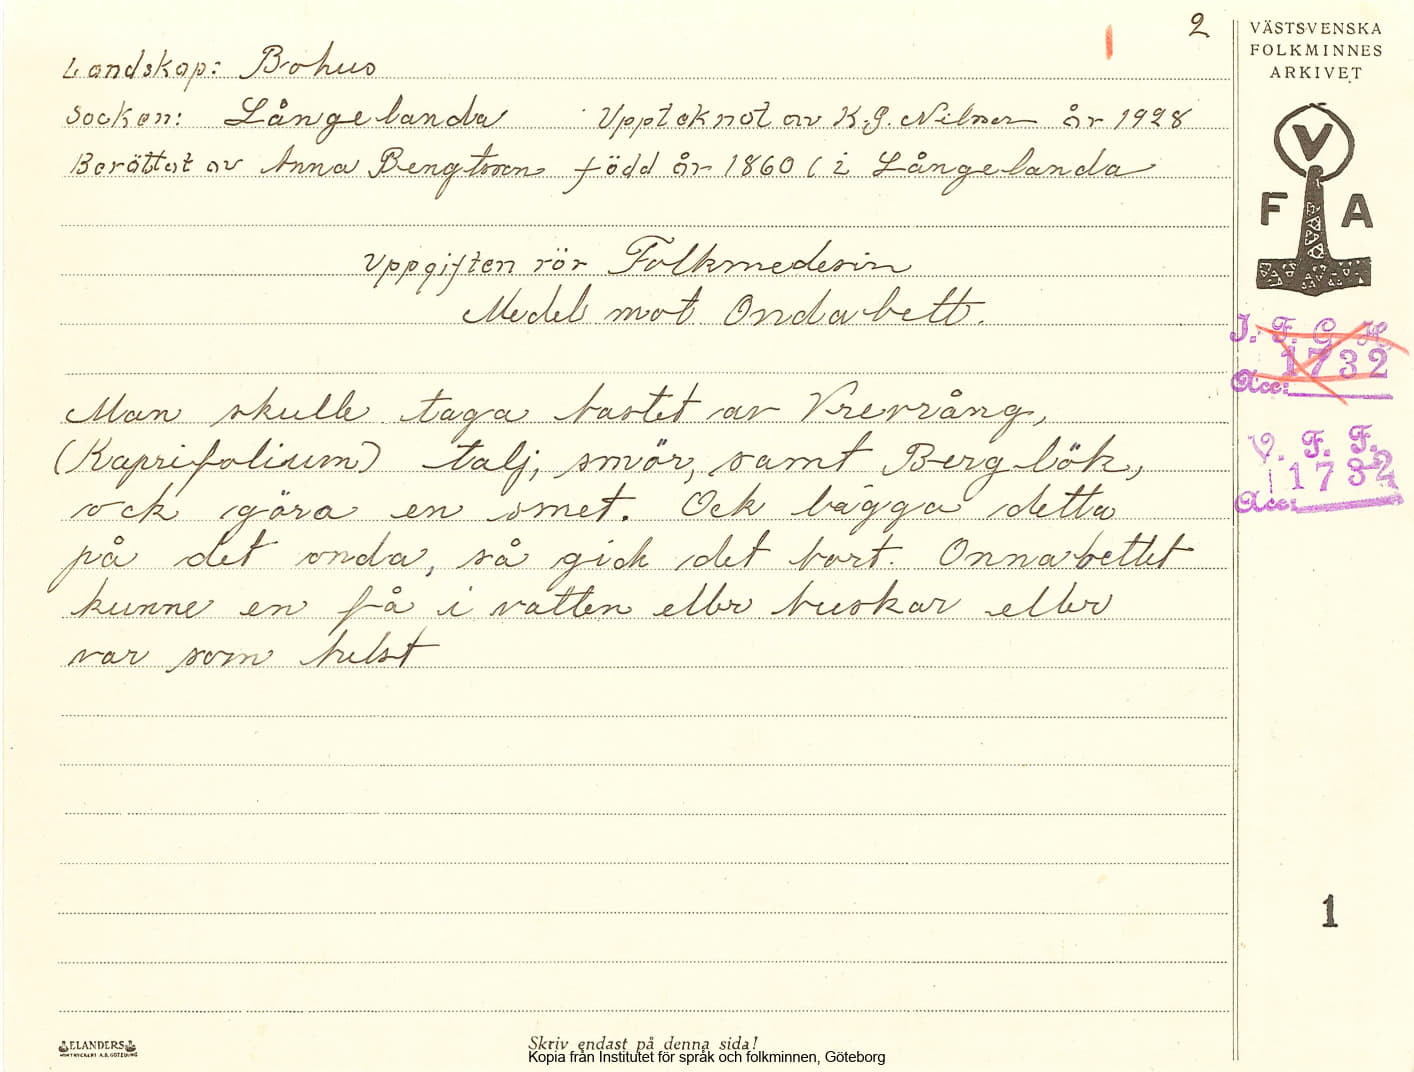 2
Landskap: Bohus
Socken: Långelanda Uppteknat av K.G. Nilson år 1928
Berättat av Anna Bengtson född år 1860 i Långelanda
Uppgiften rör Folkmedesin
Medel mot Ondabett.
Man skulle taga bastet av Vrevrång,
(Kaprifolium) talj, smör, samt Berglök,
ock göra en smet. Ock lägga detta
på det onda, så gick det bort. Onnabettet
kunne en få i vatten eller buskar eller
var som helst
VÄSTSVENSKA
FOLKMINNES
ARKIVET
V
F A
I. F. G. H.
1732
Acc:
V. F. F.
1732
Acc:
1
ELANDERS
Skriv endast på denna sida!
Kopia från Institutet för språk och folkminnen, Göteborg